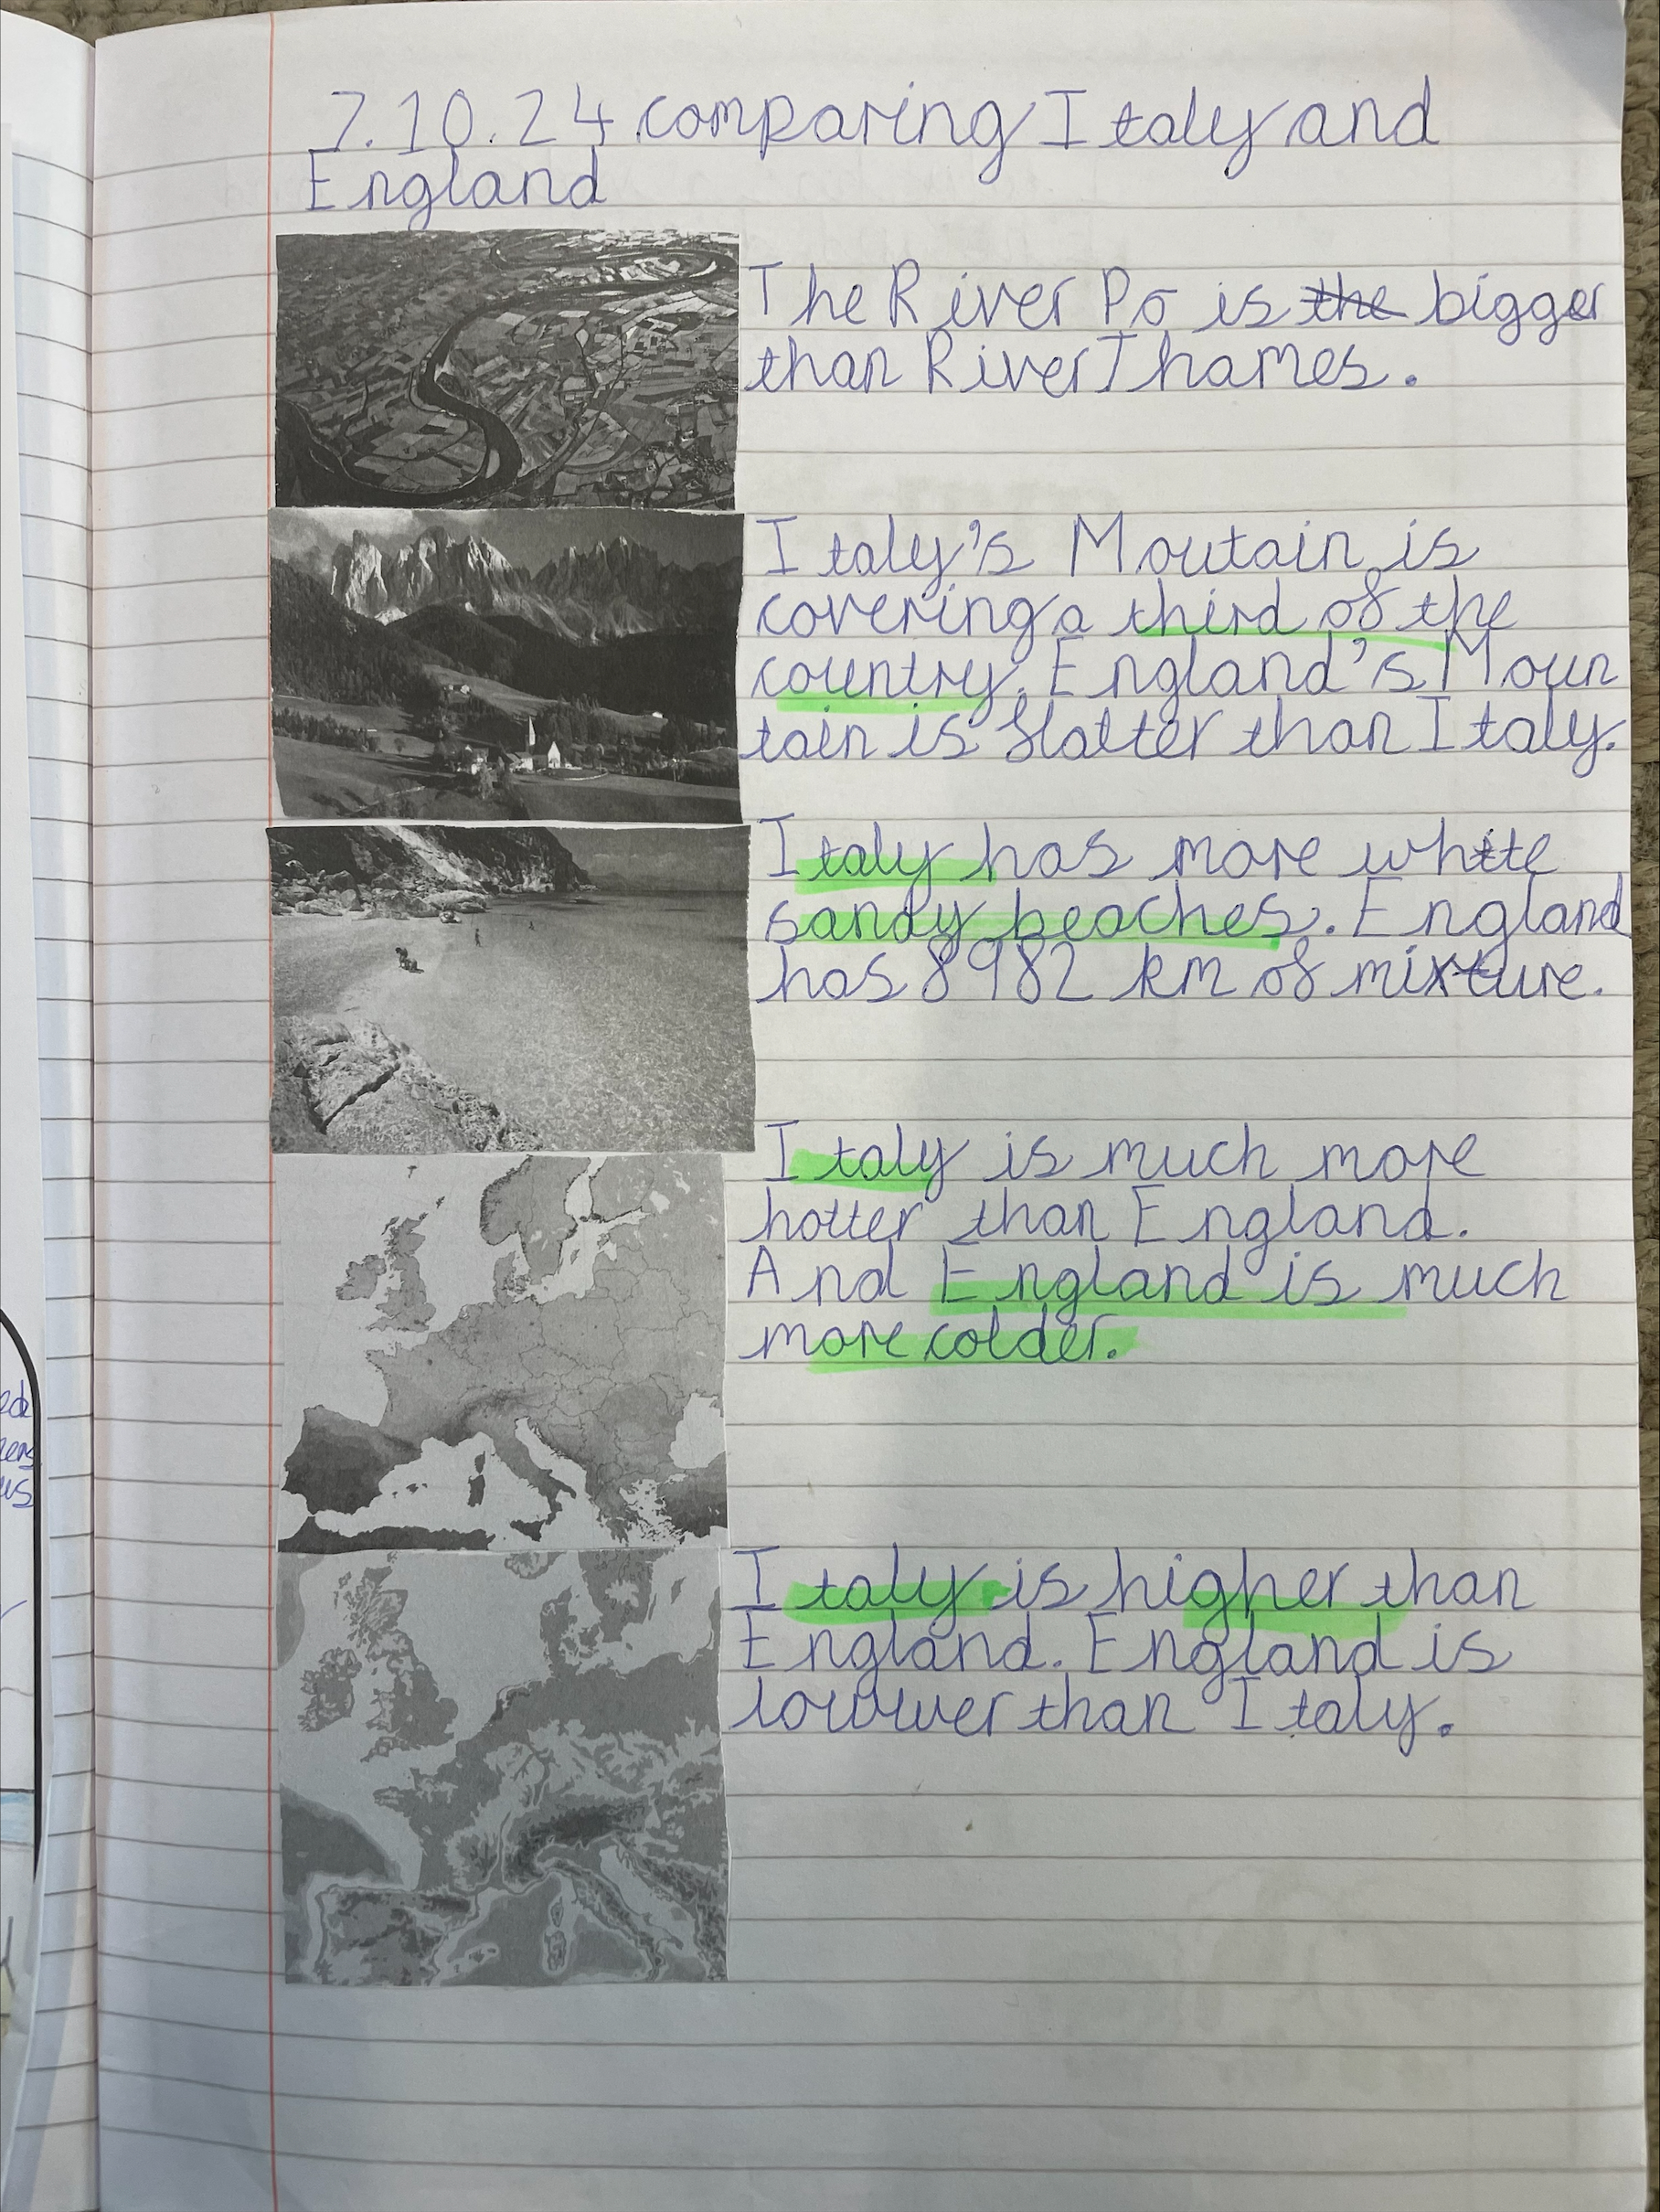 7.10.24 comparing Italy and
England
The River Po is the bigger
than River Thames.
Italy's Moutain is
covering a third of the
country. England's Moun
tain is flatter than Italy.
Italy has more white
sandy beaches. England
has 8982 km of mixture.
Italy is much more
hotter than England.
And England is much
more colder.
Italy is higher than
England. England is
lowwer than Italy.
ed
us